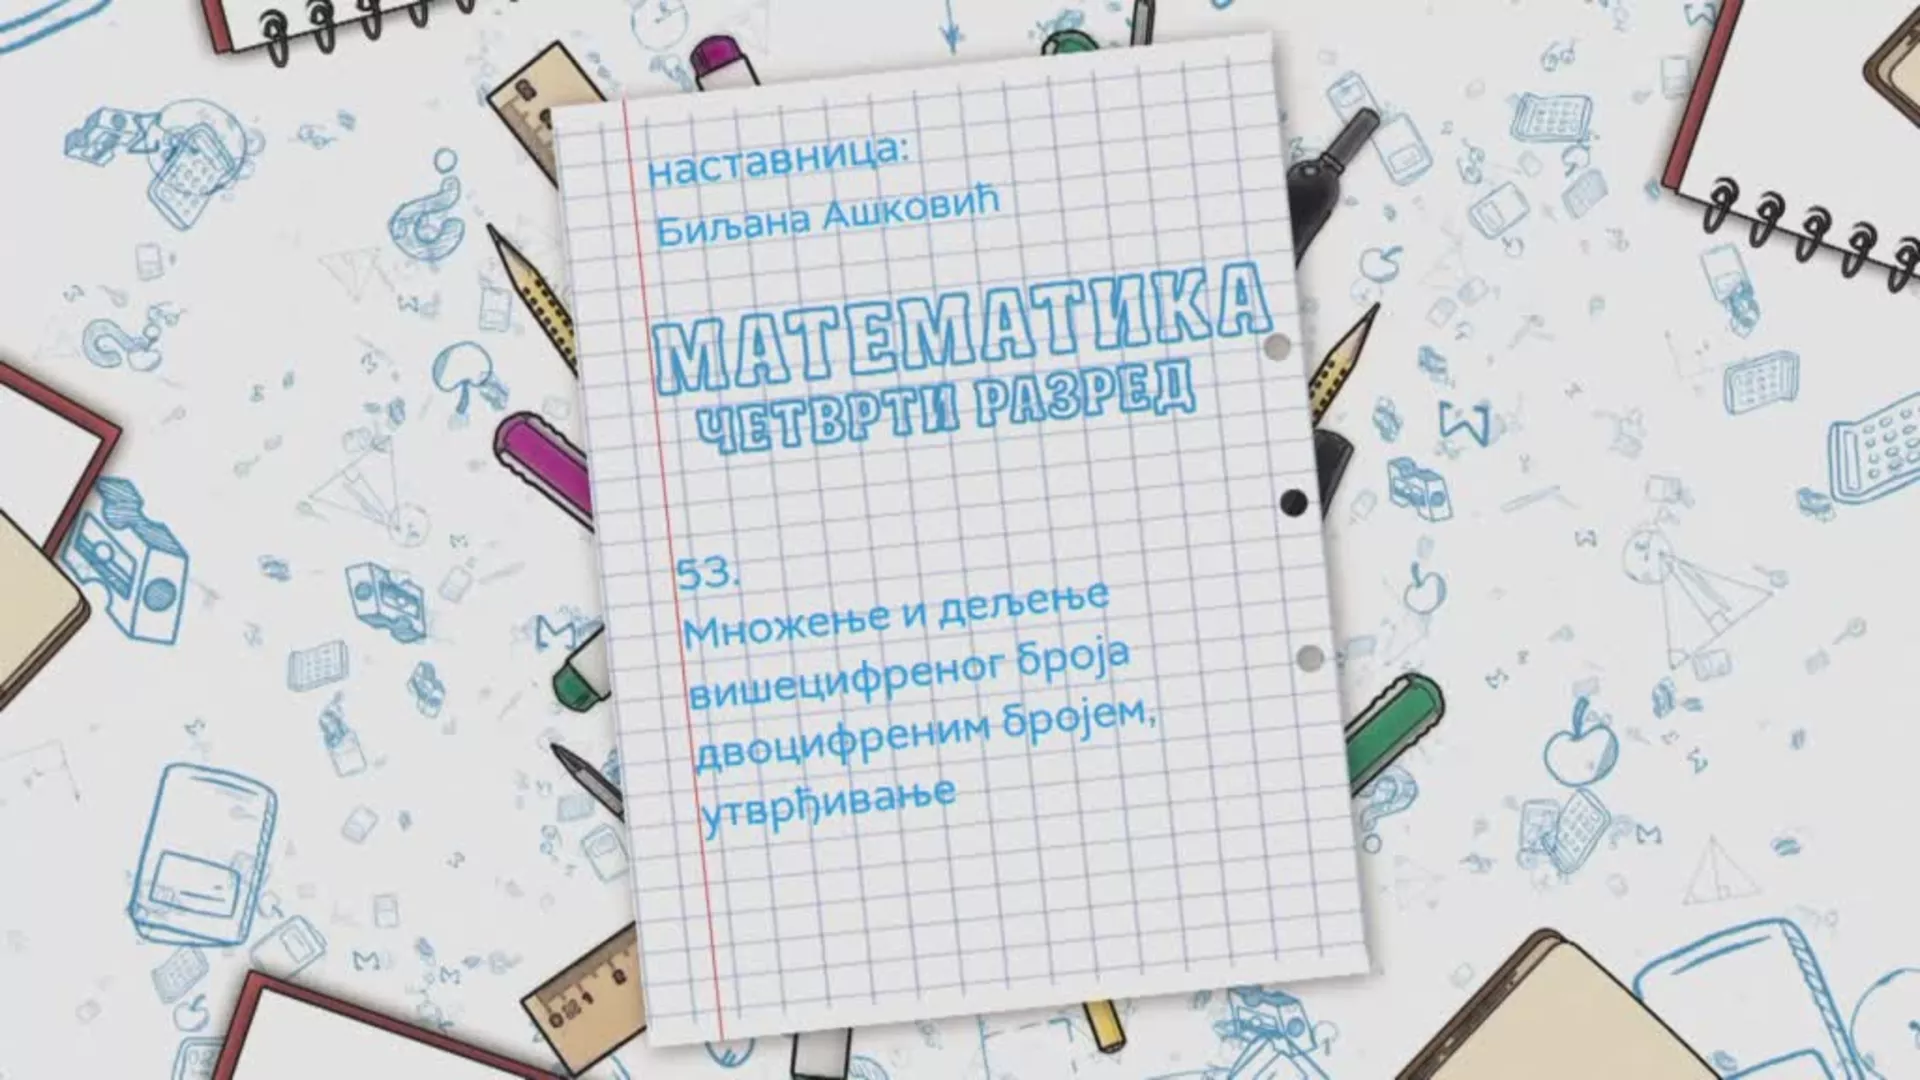 наставница:
Биљана Ашковић
МАТЕМАТИКА
ЧЕТВРТИ РАЗРЕД
53.
Множење и дељење
вишецифреног броја
двоцифреним бројем,
утврђивање